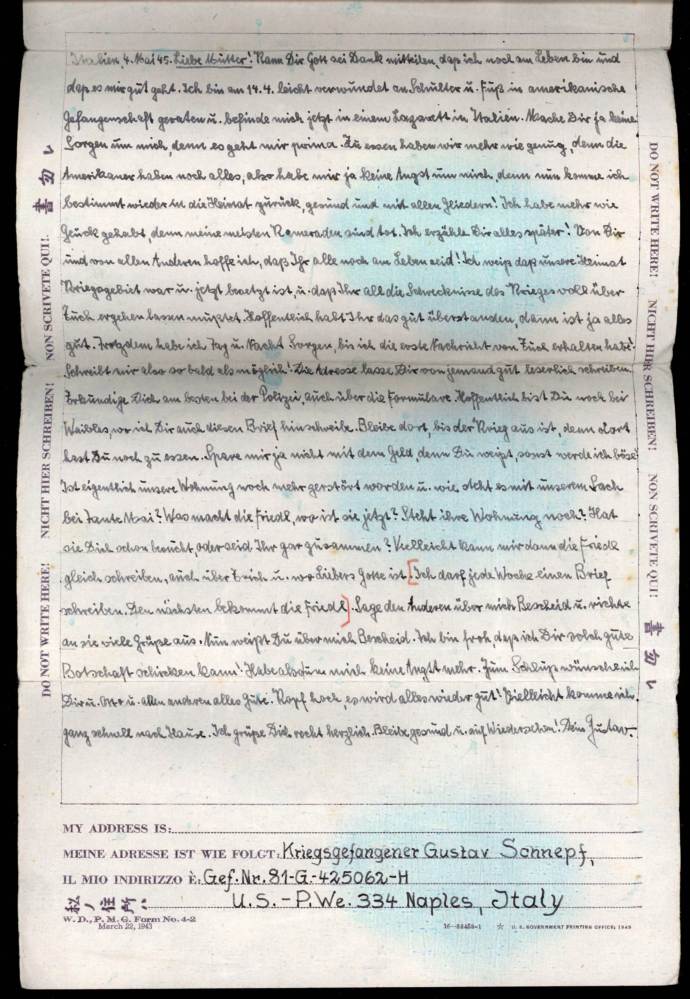 Italien, 4. Mai 45. Liebe Mutter! Kann Dir Gott sei Dank mitteilen, daß ich noch am Leben bin und
daß es mir gut geht. Ich bin am 14.4. leicht verwundet an Schulter u. Fuß in amerikanische
Gefangenschaft geraten u. befinde mich jetzt in einem Lazarett in Italien. Mache Dir ja keine
Sorgen um mich, denn es geht mir prima. Zu essen haben wir mehr wie genug, denn die
Amerikaner haben noch alles, also habe mir ja keine Angst um mich, denn nun komme ich
bestimmt wieder in die Heimat zurück, gesund und mit allen Gliedern! Ich habe mehr wie
Glück gehabt, denn meine meisten Kameraden sind tot. Ich erzähle Dir alles später! Von Dir
und von allen Anderen hoffe ich, daß Ihr alle noch am Leben seid! Ich weiß daß unsere Heimat
Kriegsgebiet war u. jetzt besetzt ist, u. daß Ihr all die Schrecknisse des Krieges voll über
Euch ergehen lassen mußtet. Hoffentlich habt Ihr das gut überstanden, dann ist ja alles
gut. Trotzdem habe ich Tag u. Nacht Sorgen, bis ich die erste Nachricht von Euch erhalten habe!
Schreibt mir also so bald als möglich! Die Adresse lasse Dir von jemand gut leserlich schreiben.
Erkundige Dich am besten bei der Polizei, auch über die Formulare. Hoffentlich bist Du noch bei
Waibles, wo ich Dir auch diesen Brief hinschreibe. Bleibe dort, bis der Krieg aus ist, denn dort
hast Du noch zu essen. Spare mir ja nicht mit dem Geld, denn Du weißt, sonst werde ich böse!
Ist eigentlich unsere Wohnung noch mehr zerstört worden u. wie steht es mit unserem Sach
bei Tante Mai? Was macht die Friedl, wo ist sie jetzt? Steht ihre Wohnung noch? Hat
sie Dich schon besucht, oder seid Ihr gar zusammen? Vielleicht kann mir dann die Friedl
gleich schreiben, auch über Erich u. wo Liebers Gotte ist. [Ich darf jede Woche einen Brief
schreiben. Den nächsten bekommt die Friedl]. Sage den Anderen über mich Bescheid u. richte
an sie viele Grüße aus. Nun weißt Du über mich Bescheid. Ich bin froh, daß ich Dir solch gute
Botschaft schicken kann! Habe also um mich keine Angst mehr. Zum Schluß wünsche ich
Dir u. Otto u. allen anderen alles Gute. Kopf hoch, es wird alles wieder gut! Vielleicht komme ich
ganz schnell nach Hause. Ich grüße Dich recht herzlich. Bleibe gesund u. auf Wiedersehen! Dein Gustav.
DO NOT WRITE HERE! NICHT HIER SCHREIBEN! NON SCRIVETE QUI! 書勿レ
DO NOT WRITE HERE! NICHT HIER SCHREIBEN! NON SCRIVETE QUI! 書勿レ
MY ADDRESS IS:
MEINE ADRESSE IST WIE FOLGT: Kriegsgefangener Gustav Schnepf,
IL MIO INDIRIZZO È: Gef. Nr. 81-G-425062-H
私ノ住所: U.S. - P.We. 334 Naples, Italy
W. D., P. M. G. Form No. 4-2
March 22, 1943
☆ U. S. GOVERNMENT PRINTING OFFICE: 1943